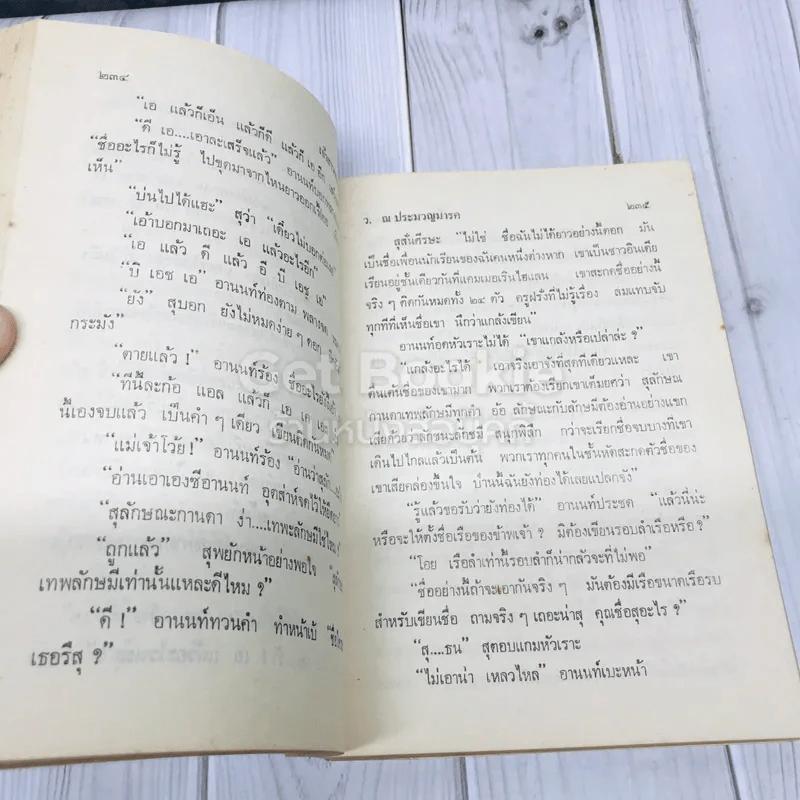 ๒๓๔
“เอ แล้วก็เอ็น แล้วก็ดี แล้วก็ เอ อีก
“ดี เอ....เอาละเสร็จแล้ว” อานนท์บอก
“ชื่ออะไรก็ไม่รู้ ไปขุดมาจากไหนยาวออก
เห็น”
“บ่นไปได้แฮะ” สุว่า “เดี๋ยวไม่บอก
“เอ้าบอกมาเถอะ เอ แล้วอะไรอีก”
“เอ แล้ว ดี แล้ว อี บี เอช เอ”
“บี เอช เอ” อานนท์ท่องตาม พลางจด
“ยัง” สุบอก ยังไม่หมดง่าย ๆ ดอก
กระมัง”
“ตายแล้ว !” อานนท์ร้อง ชื่ออะไร
“ทีนี้ละก้อ แอล แล้วก็ เอ เค
นี้เองจบแล้ว เป็นคำ ๆ เดียว เขียนติดกันหมด
“แม่เจ้าโว้ย !” อานนท์ร้อง “อ่านว่า
“อ่านเอาเองซีอานนท์ อุตส่าห์จดไว้ให้
“สุลักษณะกานดา ง่า....เทพะลักษมีใช่ไหม ?
“ถูกแล้ว” สุพยักหน้าอย่างพอใจ
เทพลักษมีเท่านั้นแหละดีไหม ?”
“ดี !” อานนท์ทวนคำ ทำหน้าเบ้
เธอรึสุ ?”
ว. ณ ประมวญมารค ๒๓๕
สุสั่นศีรษะ “ไม่ใช่ ชื่อฉันไม่ได้ยาวอย่างนี้ดอก มัน
เป็นชื่อเพื่อนนักเรียนของฉันคนหนึ่งต่างหาก เขาเป็นชาวอินเดีย
เรียนอยู่ชั้นเดียวกันที่แคมเมอเรินไฮแลน เขาสะกดชื่ออย่างนี้
จริง ๆ ติดกันหมดทั้ง ๒๔ ตัว ครูฝรั่งที่ไม่รู้เรื่อง ลมแทบจับ
ทุกทีที่เห็นชื่อเขา นึกว่าแกล้งเขียน”
อานนท์อดหัวเราะไม่ได้ “เขาแกล้งหรือเปล่าล่ะ ?”
“แกล้งอะไรได้ เอาจริงเอาจังที่สุดทีเดียวแหละ เขา
ตื่นเต้นชื่อของเขามาก พวกเราต้องเรียกเขาเต็มยศว่า สุลักษณ
กานดาเทพลักษมีทุกคำ อ้อ ลักษณะกับลักษมีต้องอ่านอย่างแขก
เสียด้วยว่าลักชนะลักชมี สนุกพิลึก กว่าจะเรียกชื่อจบบางทีเขา
เดินไปไกลแล้วเป็นต้น พวกเราทุกคนในชั้นหัดสะกดตัวชื่อของ
เขาเสียคล่องขึ้นใจ ป่านนี้ฉันยังท่องได้เลยแปลกจัง”
“รู้แล้วขอรับว่ายังท่องได้” อานนท์ประชด “แล้วนี่น่ะ
หรือจะให้ตั้งชื่อเรือของข้าพเจ้า ? มิต้องเขียนรอบลำเรือหรือ ?”
“โอย เรือลำเท่านี้รอบลำก็น่ากลัวจะที่ไม่พอ”
“ชื่ออย่างนี้ถ้าจะเอากันจริง ๆ มันต้องมีเรือขนาดเรือรบ
สำหรับเขียนชื่อ ถามจริง ๆ เถอะน่าสุ คุณชื่อสุอะไร ?”
“สุ....ธน” สุตอบแกมหัวเราะ
“ไม่เอาน่า เหลวไหล” อานนท์เบะหน้า
Get Bookie